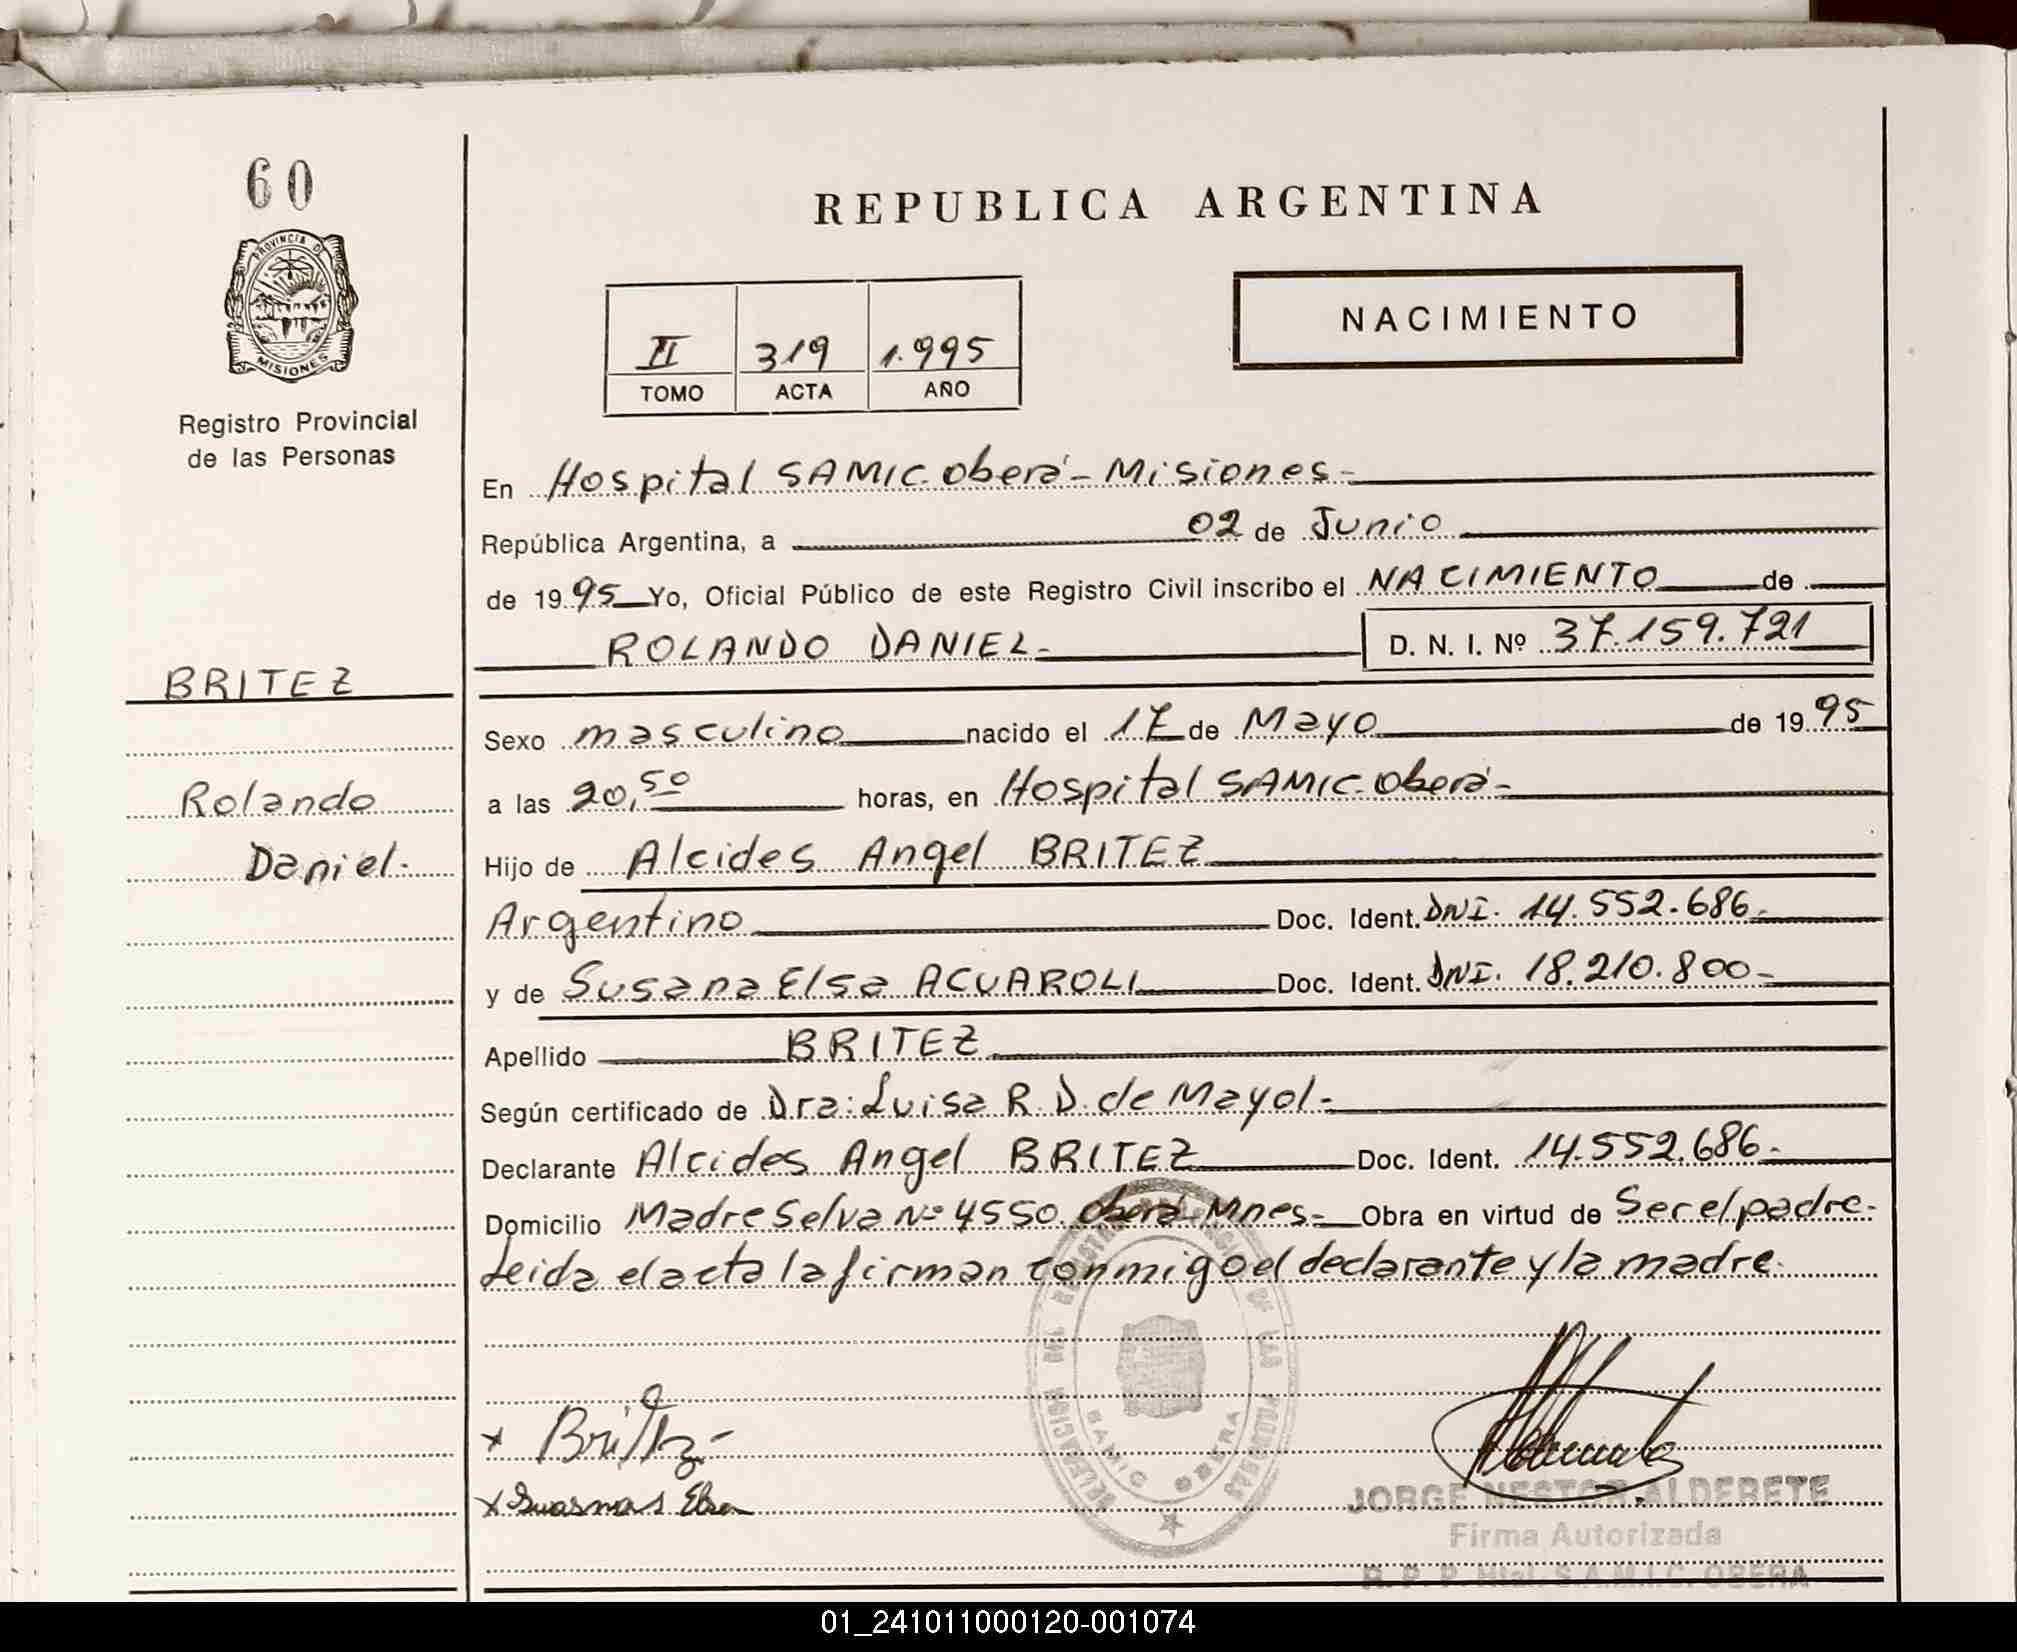 60
PROVINCIA DE
MISIONES
Registro Provincial
de las Personas
REPUBLICA ARGENTINA
NACIMIENTO
II 319 1.995
TOMO ACTA AÑO
En Hospital SAMIC. Oberá - Misiones -
República Argentina, a 02 de Junio
de 1995 Yo, Oficial Público de este Registro Civil inscribo el NACIMIENTO de
ROLANDO DANIEL - D. N. I. Nº 37.159.721
BRITEZ
Sexo masculino nacido el 17 de Mayo de 1995
Rolando
a las 20,50 horas, en Hospital SAMIC. Oberá -
Daniel.
Hijo de Alcides Angel BRITEZ
Argentino Doc. Ident. DNI. 14.552.686 -
y de Susana Elsa ACUAROLI Doc. Ident. DNI. 18.210.800 -
Apellido BRITEZ
Según certificado de Dra: Luisa R. D. de Mayol -
Declarante Alcides Angel BRITEZ Doc. Ident. 14.552.686 -
Domicilio Madre Selva Nº 4550 Oberá Mnes - Obra en virtud de Ser el padre -
Leida el acta la firman conmigo el declarante y la madre.
x Britez -
SAMIC OBERA
JORGE NESTOR ALDERETE
Firma Autorizada
R. P. P. Htal. S.A.M.I.C. OBERA
01_241011000120-001074